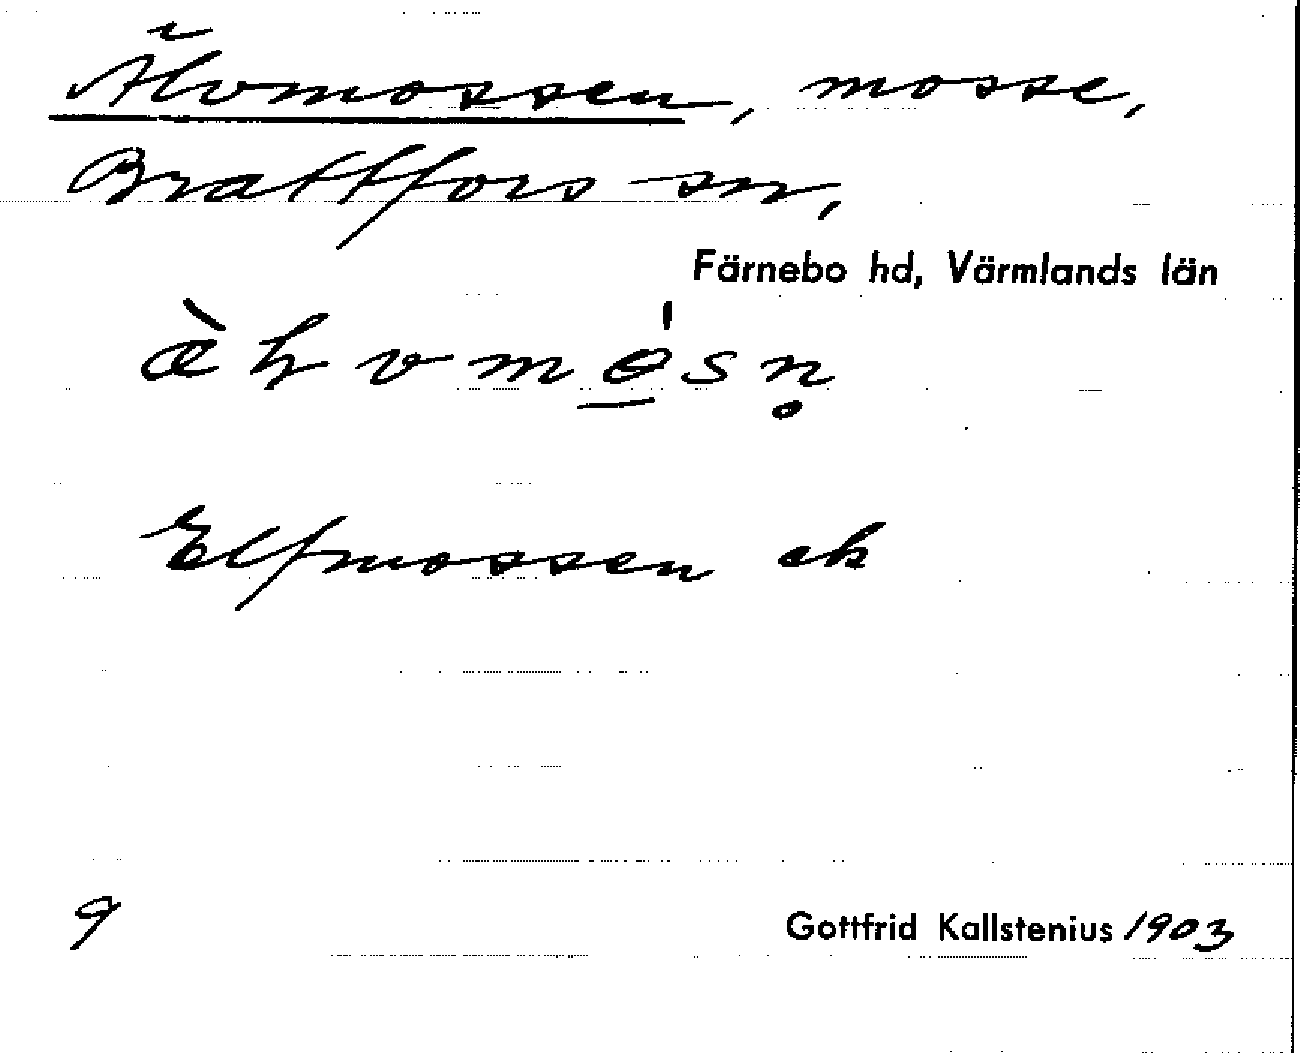 Älvmossen, mosse,
Brattfors sn,
Färnebo hd, Värmlands län
æ̀ɫvmo̲̍sn̥
Elfmossen ek
9
Gottfrid Kallstenius 1903